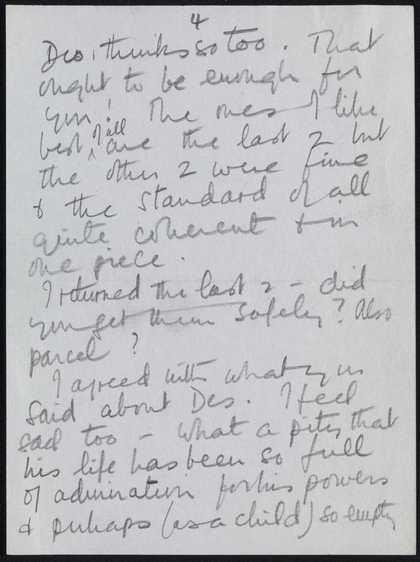 4
Des, thinks so too. That
ought to be enough for
you! The ones I like
best of all are the last 2 but
the other 2 were fine
& the standard of all
quite coherent & in
one piece.
I returned the last 2 – did
you get them safely? Also
parcel?
I agreed with what you
said about Des. I feel
sad too – what a pity that
his life has been so full
of admiration for his powers
& perhaps (as a child) so empty